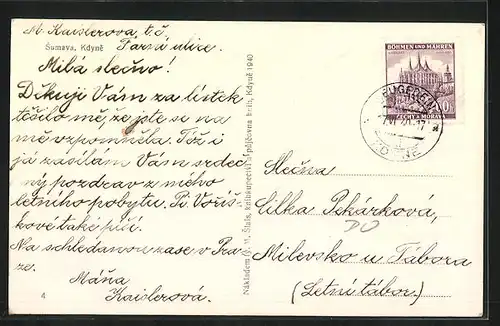 M. Kaislerova, t.č.
Šumava, Kdyně
Farní ulice.
Milá slečno!
Děkuji Vám za lístek
těšilo mě, že jste se na
mě vzpomněla. Též i
já zasílám Vám srdeč-
ný pozdrav z mého
letního pobytu. Pí. Voříš-
kové také píši.
Na schledanou zase v Pra-
ze.
Máňa
Kaislerová.
4
Nákladem J. W. Šlais, knihkupectví a půjčovna knih, Kdyně 1940
BÖHMEN UND MÄHREN
ČECHY A MORAVA
NEUGEDEIN
KDYNĚ
Slečna
Lilka Pekárková,
Milevsko u Tábora
(Letní tábor.)